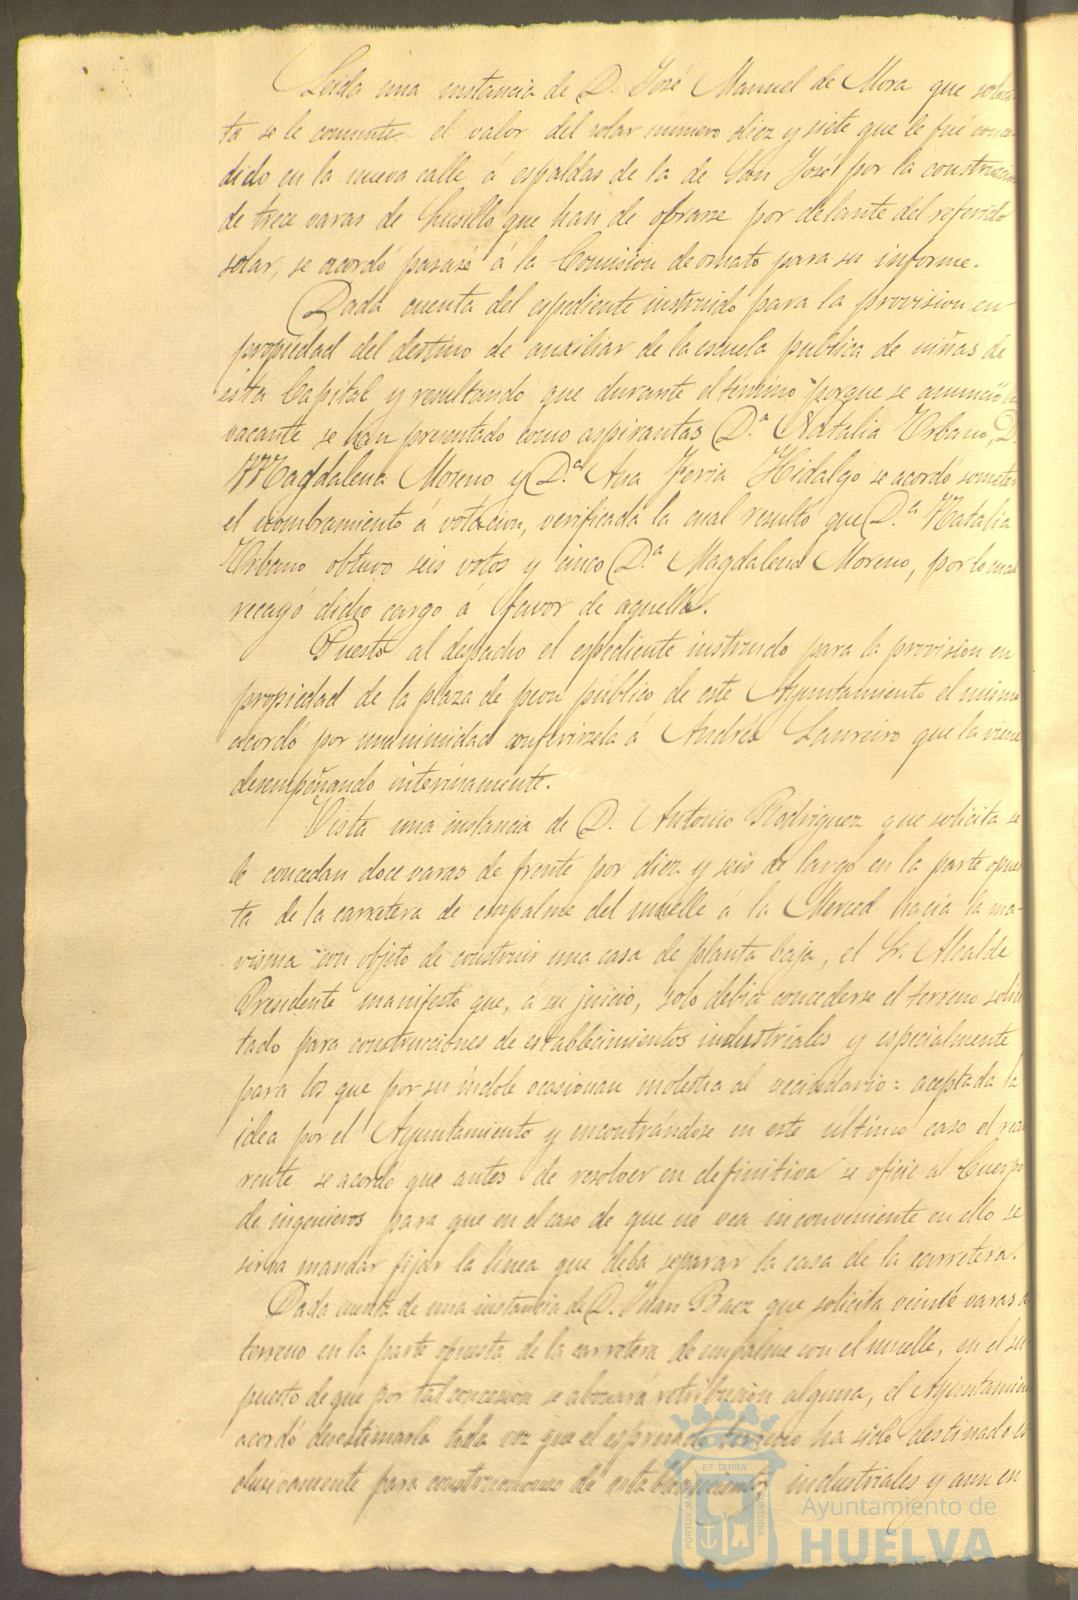 Leida una instancia de D. José Manuel de Mora que solici-
ta se le conmute el valor del solar número diez y siete que le fué conce-
dido en la nueva calle á espaldas de la de San José por la construccion
de trece varas de husillo que han de obrarse por delante del referido
solar, se acordó pasase á la Comision de ornato para su informe.
Dada cuenta del espediente instruido para la provision en
propiedad del destino de auxiliar de la escuela publica de niñas de
esta Capital y resultando que durante el término porque se anunció la
vacante se han presentado como aspirantas D.ª Natalia Urbano, D.ª
Magdalena Moreno y D.ª Ana Feria Hidalgo se acordó someter
el nombramiento á votacion, verificada la cual resultó que D.ª Natalia
Urbano obtuvo seis votos y cinco D.ª Magdalena Moreno, por lo cual
recayó dicho cargo á favor de aquella.
Puesto al despacho el espediente instruido para la provision en
propiedad de la plaza de peon público de este Ayuntamiento el mismo
acordó por unanimidad conferirsela á Andrés Laureiro que la viene
desempeñando interinamente.
Vista una instancia de D. Antonio Rodriguez que solicita se
le concedan doce varas de frente por diez y seis de largo en la parte opues-
ta de la carretera de empalme del muelle a la Merced hacia la ma-
risma con objeto de construir una casa de planta baja, el Sr. Alcalde
Presidente manifestó que, á su juicio, solo debia concederse el terreno solici-
tado para construcciones de establecimientos industriales y especialmente
para los que por su índole ocasionan molestia al vecindario: aceptada la
idea por el Ayuntamiento y encontrándose en este último caso el recu-
rrente se acordó que antes de resolver en definitiva se oficie al Cuerpo
de ingenieros para que en el caso de que no vea inconveniente en ello se
sirva mandar fijar la línea que deba separar la casa de la carretera.
Dada cuenta de una instancia de D. Juan Baez que solicita veinte varas de
terreno en la parte opuesta de la carretera de empalme con el muelle, en el su-
puesto de que por tal concesion se abonará retribucion alguna, el Ayuntamiento
acordó desestimarla toda vez que el espresado terreno ha sido destinado es-
clusivamente para construcciones de establecimientos industriales y aun en
PORTUS MARIS ET TERRÆ CUSTODIA
Ayuntamiento de
HUELVA